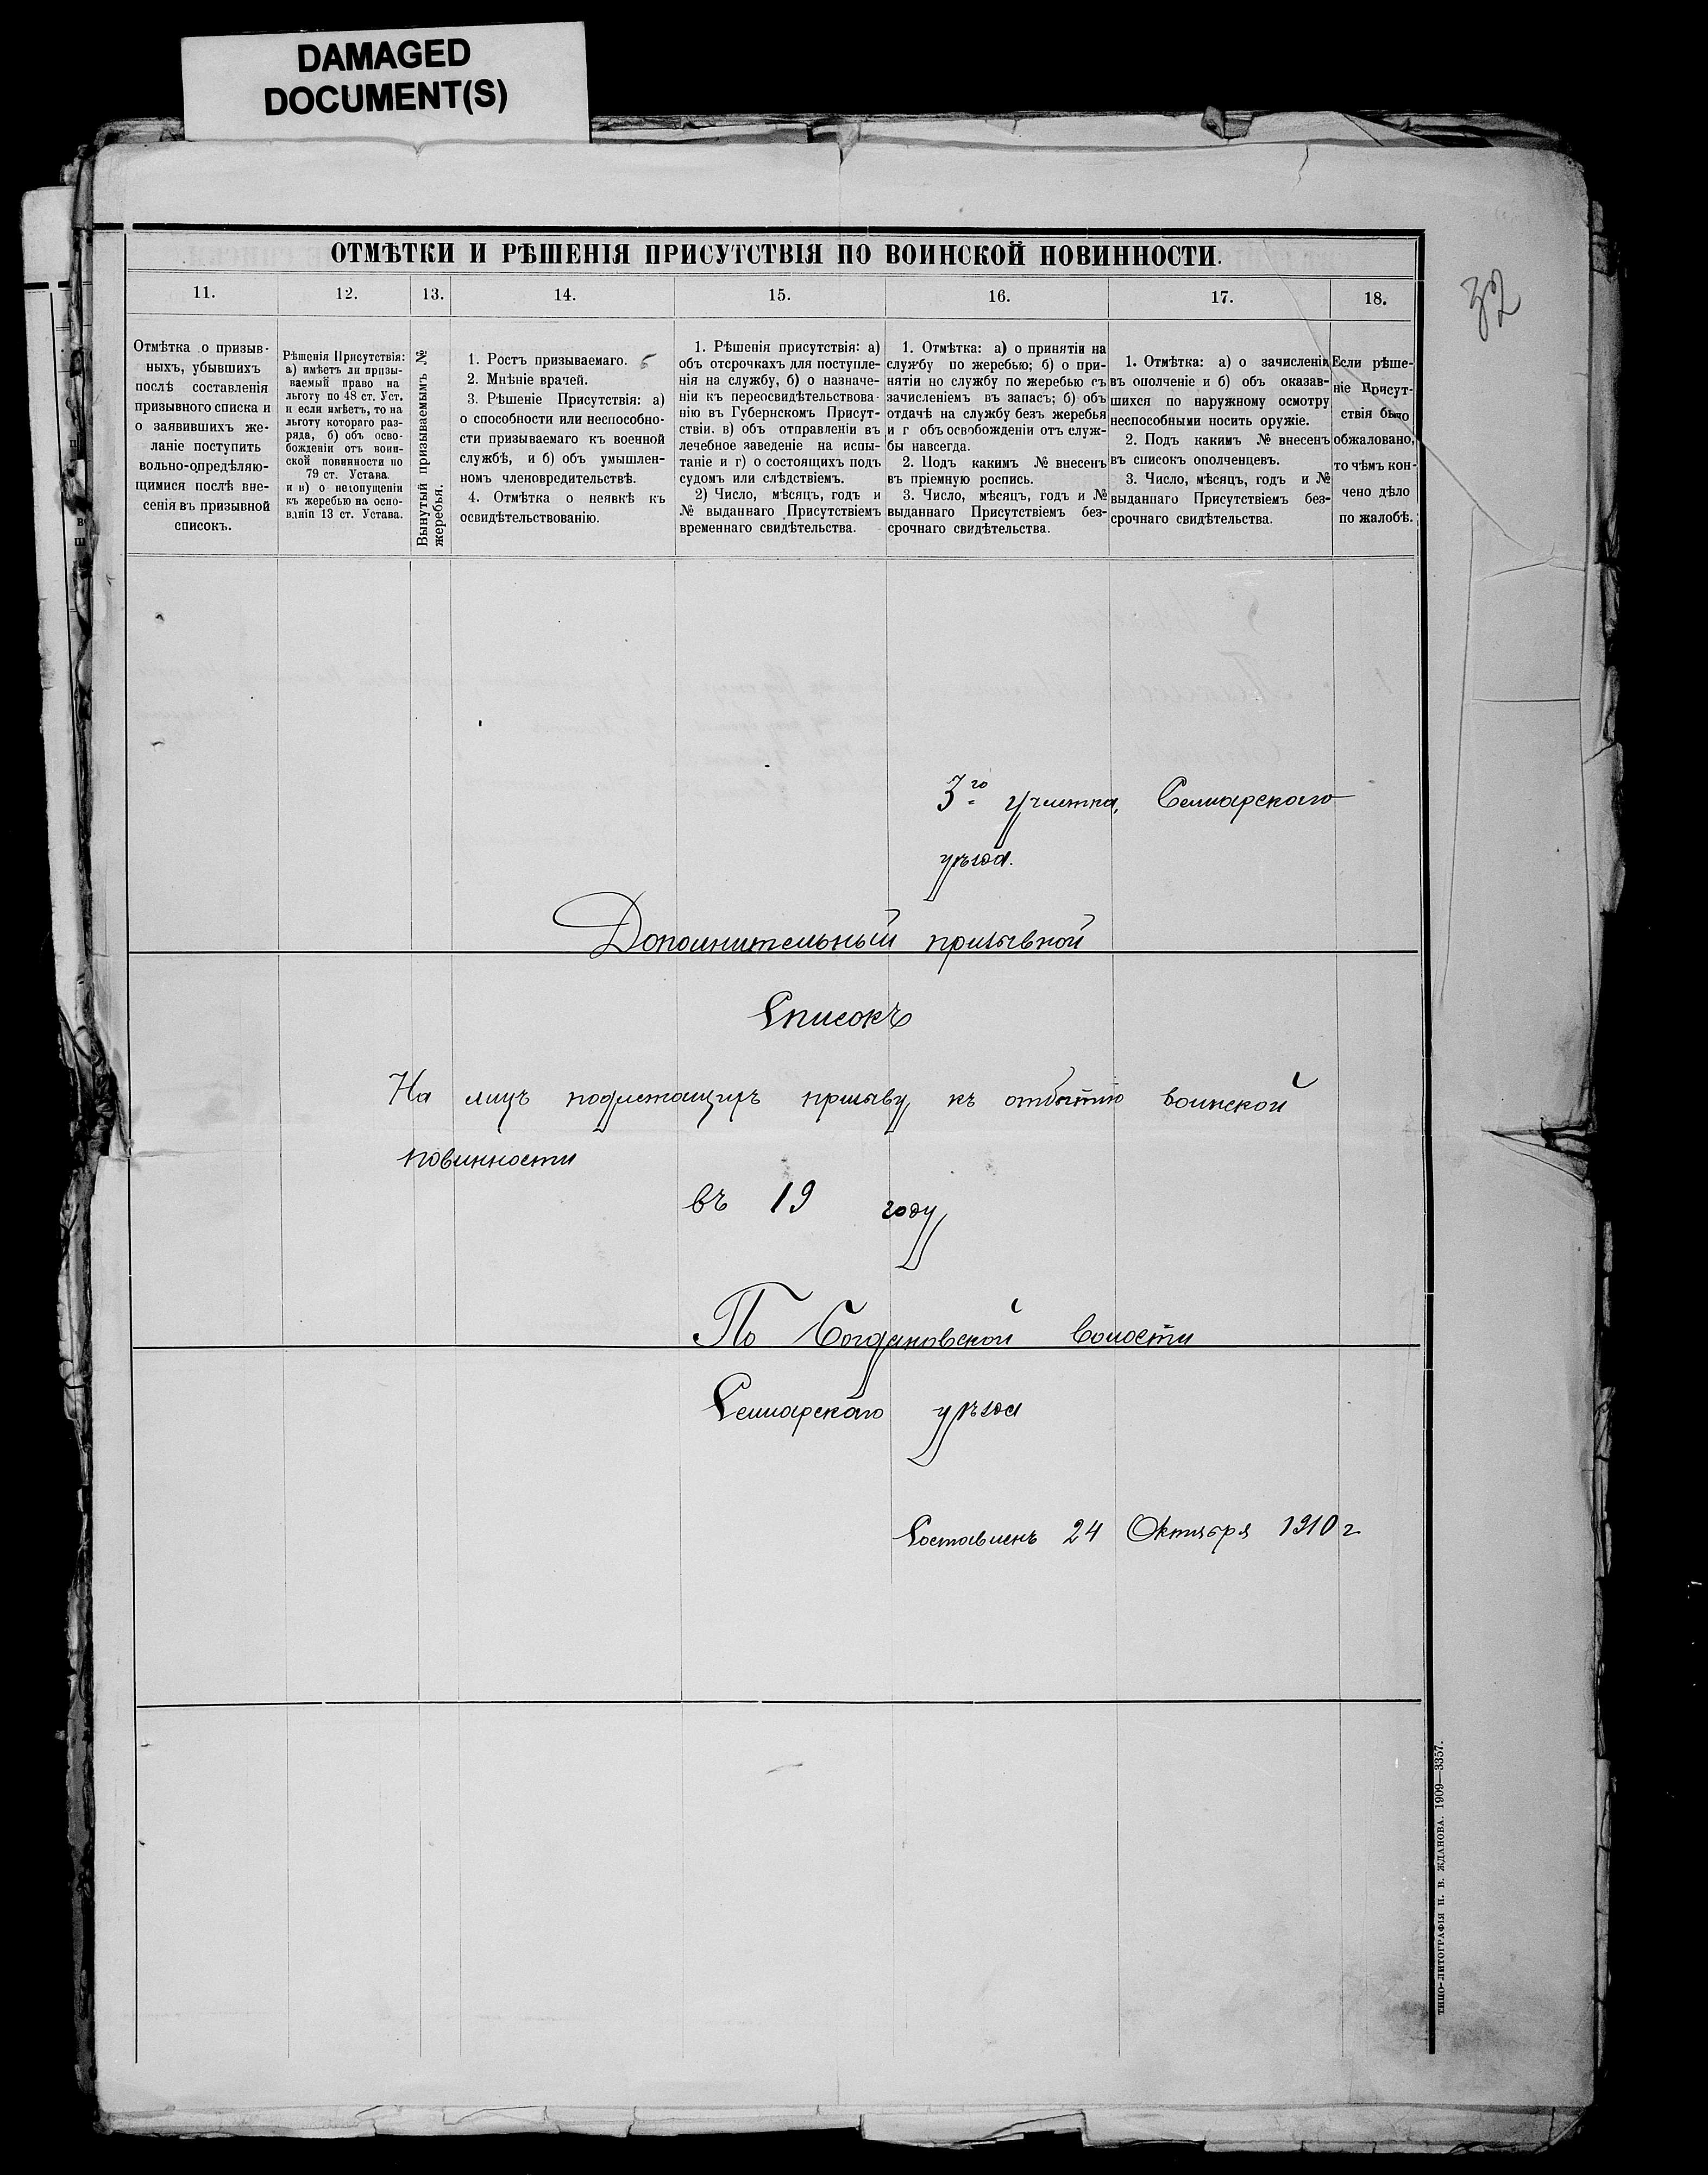 DAMAGED
DOCUMENT(S)
32
ОТМѢТКИ И РѢШЕНІЯ ПРИСУТСТВІЯ ПО ВОИНСКОЙ ПОВИННОСТИ.
11.
12.
13.
14.
15.
16.
17.
18.
Отмѣтка о призыв-
ныхъ, убывшихъ
послѣ составленія
призывного списка и
о заявившихъ же-
ланіе поступить
вольно-опредѣляю-
щимися послѣ вне-
сенія въ призывной
списокъ.
Рѣшенія Присутствія:
а) имѣетъ ли призы-
ваемый право на
льготу по 48 ст. Уст.
и если имѣетъ, то на
льготу котораго раз-
ряда, б) объ осво-
божденіи отъ воин-
ской повинности по
79 ст. Устава.
и в) о недопущеніи
къ жеребью на осно-
ваніи 13 ст. Устава.
Вынутый призываемымъ №
жеребья.
1. Ростъ призываемаго. б
2. Мнѣніе врачей.
3. Рѣшеніе Присутствія: а)
о способности или неспособно-
сти призываемаго къ военной
службѣ, и б) объ умышлен-
номъ членовредительствѣ.
4. Отмѣтка о неявкѣ къ
освидѣтельствованію.
1. Рѣшенія присутствія: а)
объ отсрочкахъ для поступле-
нія на службу, б) о назначе-
ніи къ переосвидѣтельствова-
нію въ Губернскомъ Присут-
ствіи. в) объ отправленіи въ
лечебное заведеніе на испы-
таніе и г) о состоящихъ подъ
судомъ или слѣдствіемъ.
2) Число, мѣсяцъ, годъ и
№ выданнаго Присутствіемъ
временнаго свидѣтельства.
1. Отмѣтка: а) о принятіи на
службу по жеребью; б) о при-
нятіи но службу по жеребью съ
зачисленіемъ въ запасъ; б) объ
отдачѣ на службу безъ жеребья
и г объ освобожденіи отъ служ-
бы навсегда.
2. Подъ какимъ № внесенъ
въ пріемную роспись.
3. Число, мѣсяцъ, годъ и №
выданнаго Присутствіемъ без-
срочнаго свидѣтельства.
1. Отмѣтка: а) о зачисленіи
въ ополченіе и б) объ оказав-
шихся по наружному осмотру
неспособными носить оружіе.
2. Подъ какимъ № внесенъ
въ списокъ ополченцевъ.
3. Число, мѣсяцъ, годъ и №
выданнаго Присутствіемъ без-
срочнаго свидѣтельства.
Если рѣше-
ніе Присут-
ствія было
обжаловано,
то чѣмъ кон-
чено дѣло
по жалобѣ.
3го участка, Самарскаго
уѣзда.
Дополнительный призывной
Списокъ
На лицъ подлежащихъ призыву къ отбытію воинской
повинности
въ 19 году
По Богдановской волости
Самарскаго уѣзда
Составленъ 24 Октября 1910 г
ТИПО-ЛИТОГРАФІЯ Н. В. ЖДАНОВА. 1909—3357.